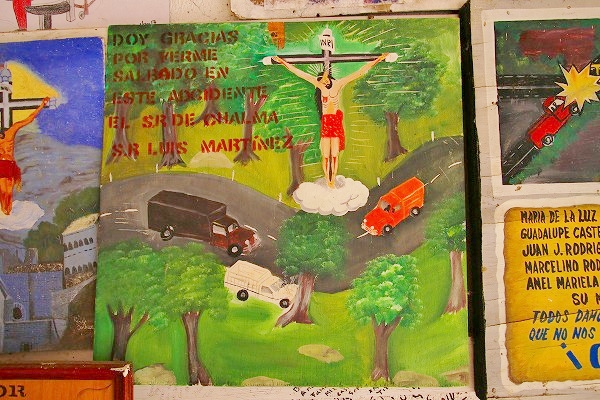 DOY GRACIAS
POR VERME
SALBADO EN
ESTE ACCIDENTE
EL SR DE CHALMA
SR LUIS MARTINEZ
INRI
MARIA DE LA LUZ
GUADALUPE CASTE
JUAN J. RODRIG
MARCELINO ROD
ANEL MARIELA
SU M
TODOS DAMO
QUE NO NOS
¡G
OR